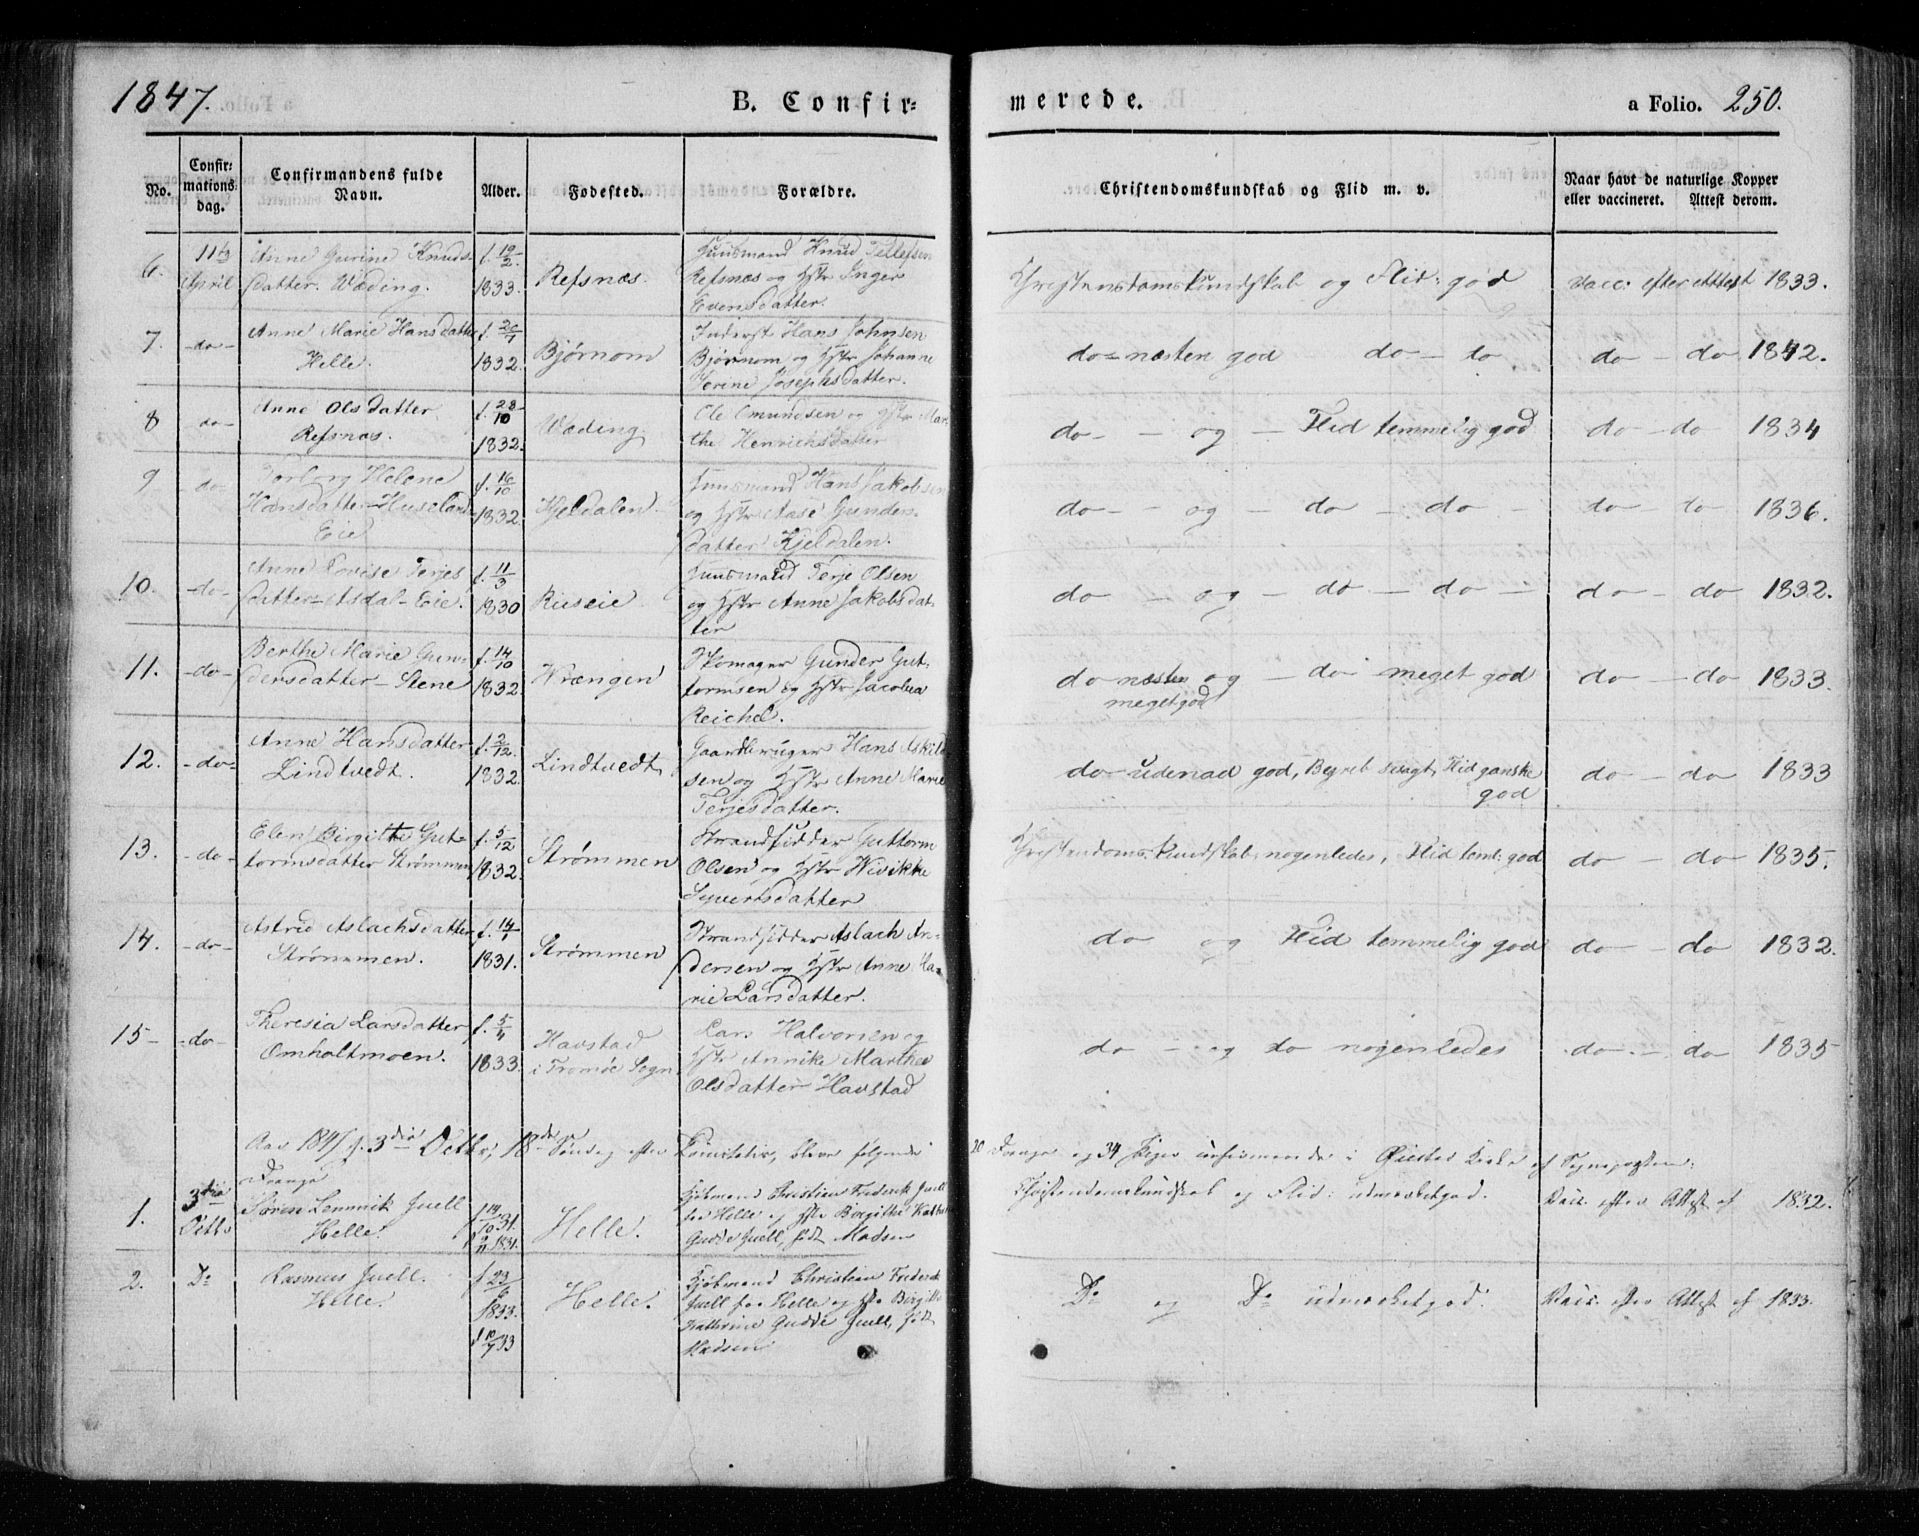 1847.
B. Confir=
merede.
a Folio. 250.
No.
Confir=
mations
dag.
Confirmandens fulde
Navn.
Alder.
Fødested.
Forældre.
Christendomskundskab og Flid m. v.
Naar havt de naturlige Kopper
eller vaccineret. Attest derom.
6.
11te
April
Anne Gurine Knuds
datter. Wæding.
f. 19/2
1833.
Refsnæs.
Huusmand Knud Tellefsen
Refsnæs og Hstr Inger
Evensdatter.
Christensdomskundskab og Flid: god
Vacc: efter attest 1833.
7.
-do-
Anne Marie Hansdatter
Helle.
f. 20/7
1832.
Bjørnom
Inderst Hans Johnsen
Bjørnom og Hstr Johanne
Serine Josephsdatter.
do næsten god do - do
do - do 1842.
8
do-
Anne Olsdatter
Refsnæs.
f. 28/10
1832.
Wæding.
Ole Omundsen og Hstr Mar
the Henrichsdatter
do- - og - Flid temmelig god
do - do 1834
9
do
Torborg Helene
Hansdatter Huseland
Eie
f. 16/10
1832.
Kjeldalen.
Huusmand Hans Jakobsen
og Hstr Aase Gunders
datter Kjeldalen.
do- - og - do - do -
do - do 1836.
10.
-do-
Anne Lovise Terjes
datter - Asdal - Eie.
f. 11/3
1830
Riiseie
Huusmand Terje Olsen
og Hstr Anne Jakobsdat-
ter
do - og - do - do -
do - do 1832.
11.
-do-
Berthe Marie Gun-
dersdatter - Stene
f. 14/10
1832.
Wrængen
Skomager Gunder Gut-
tormsen og Hstr Jacobea
Reichel.
do næsten og - do meget god
meget god
do - do 1833.
12.
-do-
Anne Hansdatter
Lindtvedt.
f. 2/12
1832.
Lindtvedt
Gaardbruger Hans Askild
sen og Hstr Anne Marie
Terjesdatter.
do udenad god, Begreb svagt, Flid ganske
god
do - do 1833
13.
-do-
Elen Birgitte Gut-
tormsdatter Strømmen
f. 5/12
1832.
Strømmen
Strandsidder Guttorm
Olsen og Hstr Wivikke
Syvertsdatter
Christendoms.kundskab: nogenledes, Flid teml: god
do - do 1835.
14.
-do-
Astrid Aslachsdatter
Strømmen.
f. 14/1
1831.
Strømmen
Strandsidder Aslach An-
dersen og Hstr Anne Ma-
rie Larsdatter.
do og Flid temmelig god
do - do 1832.
15-
-do-
Theresia Larsdatter
Omholtmoen.
f. 5/4
1833.
Havstad
i Tromøe Sogn
Lars Halvorsen og
Hstr Annike Marthea
Olsdatter Havstad
do - og do nogenledes
do - do 1835
Aar 1847 d. 3die Octbr, 18de Søndag efter Trinitatis, bleve følgende
20 Drenge og 34 Piger confirmerede i Øiestad Kirke af Sognepresten:
Drenge
1.
3die
Octb
Søren Lemmik Juell
Helle.
f 14/10 31.
d 9/11 1831.
Helle.
Kjøbmand Christian Frederik Juell
paa Helle og Hstr Birgitte Kathrine
Gudde Juell, født Madsen
Christendomskundskab og Flid: udmærketgod.
Vacc. efter Attest af 1832.
2.
Do
Rasmus Juell.
Helle.
f 23/6
1833.
d 10/7 33
Helle.
Kjøbmand Christian Frederik
Juell paa Helle og Hstr Birgitte
Kathrine Gudde Juell, født
Madsen
Do og Do udmærketgod.
Vacc. efter Attest af 1833.